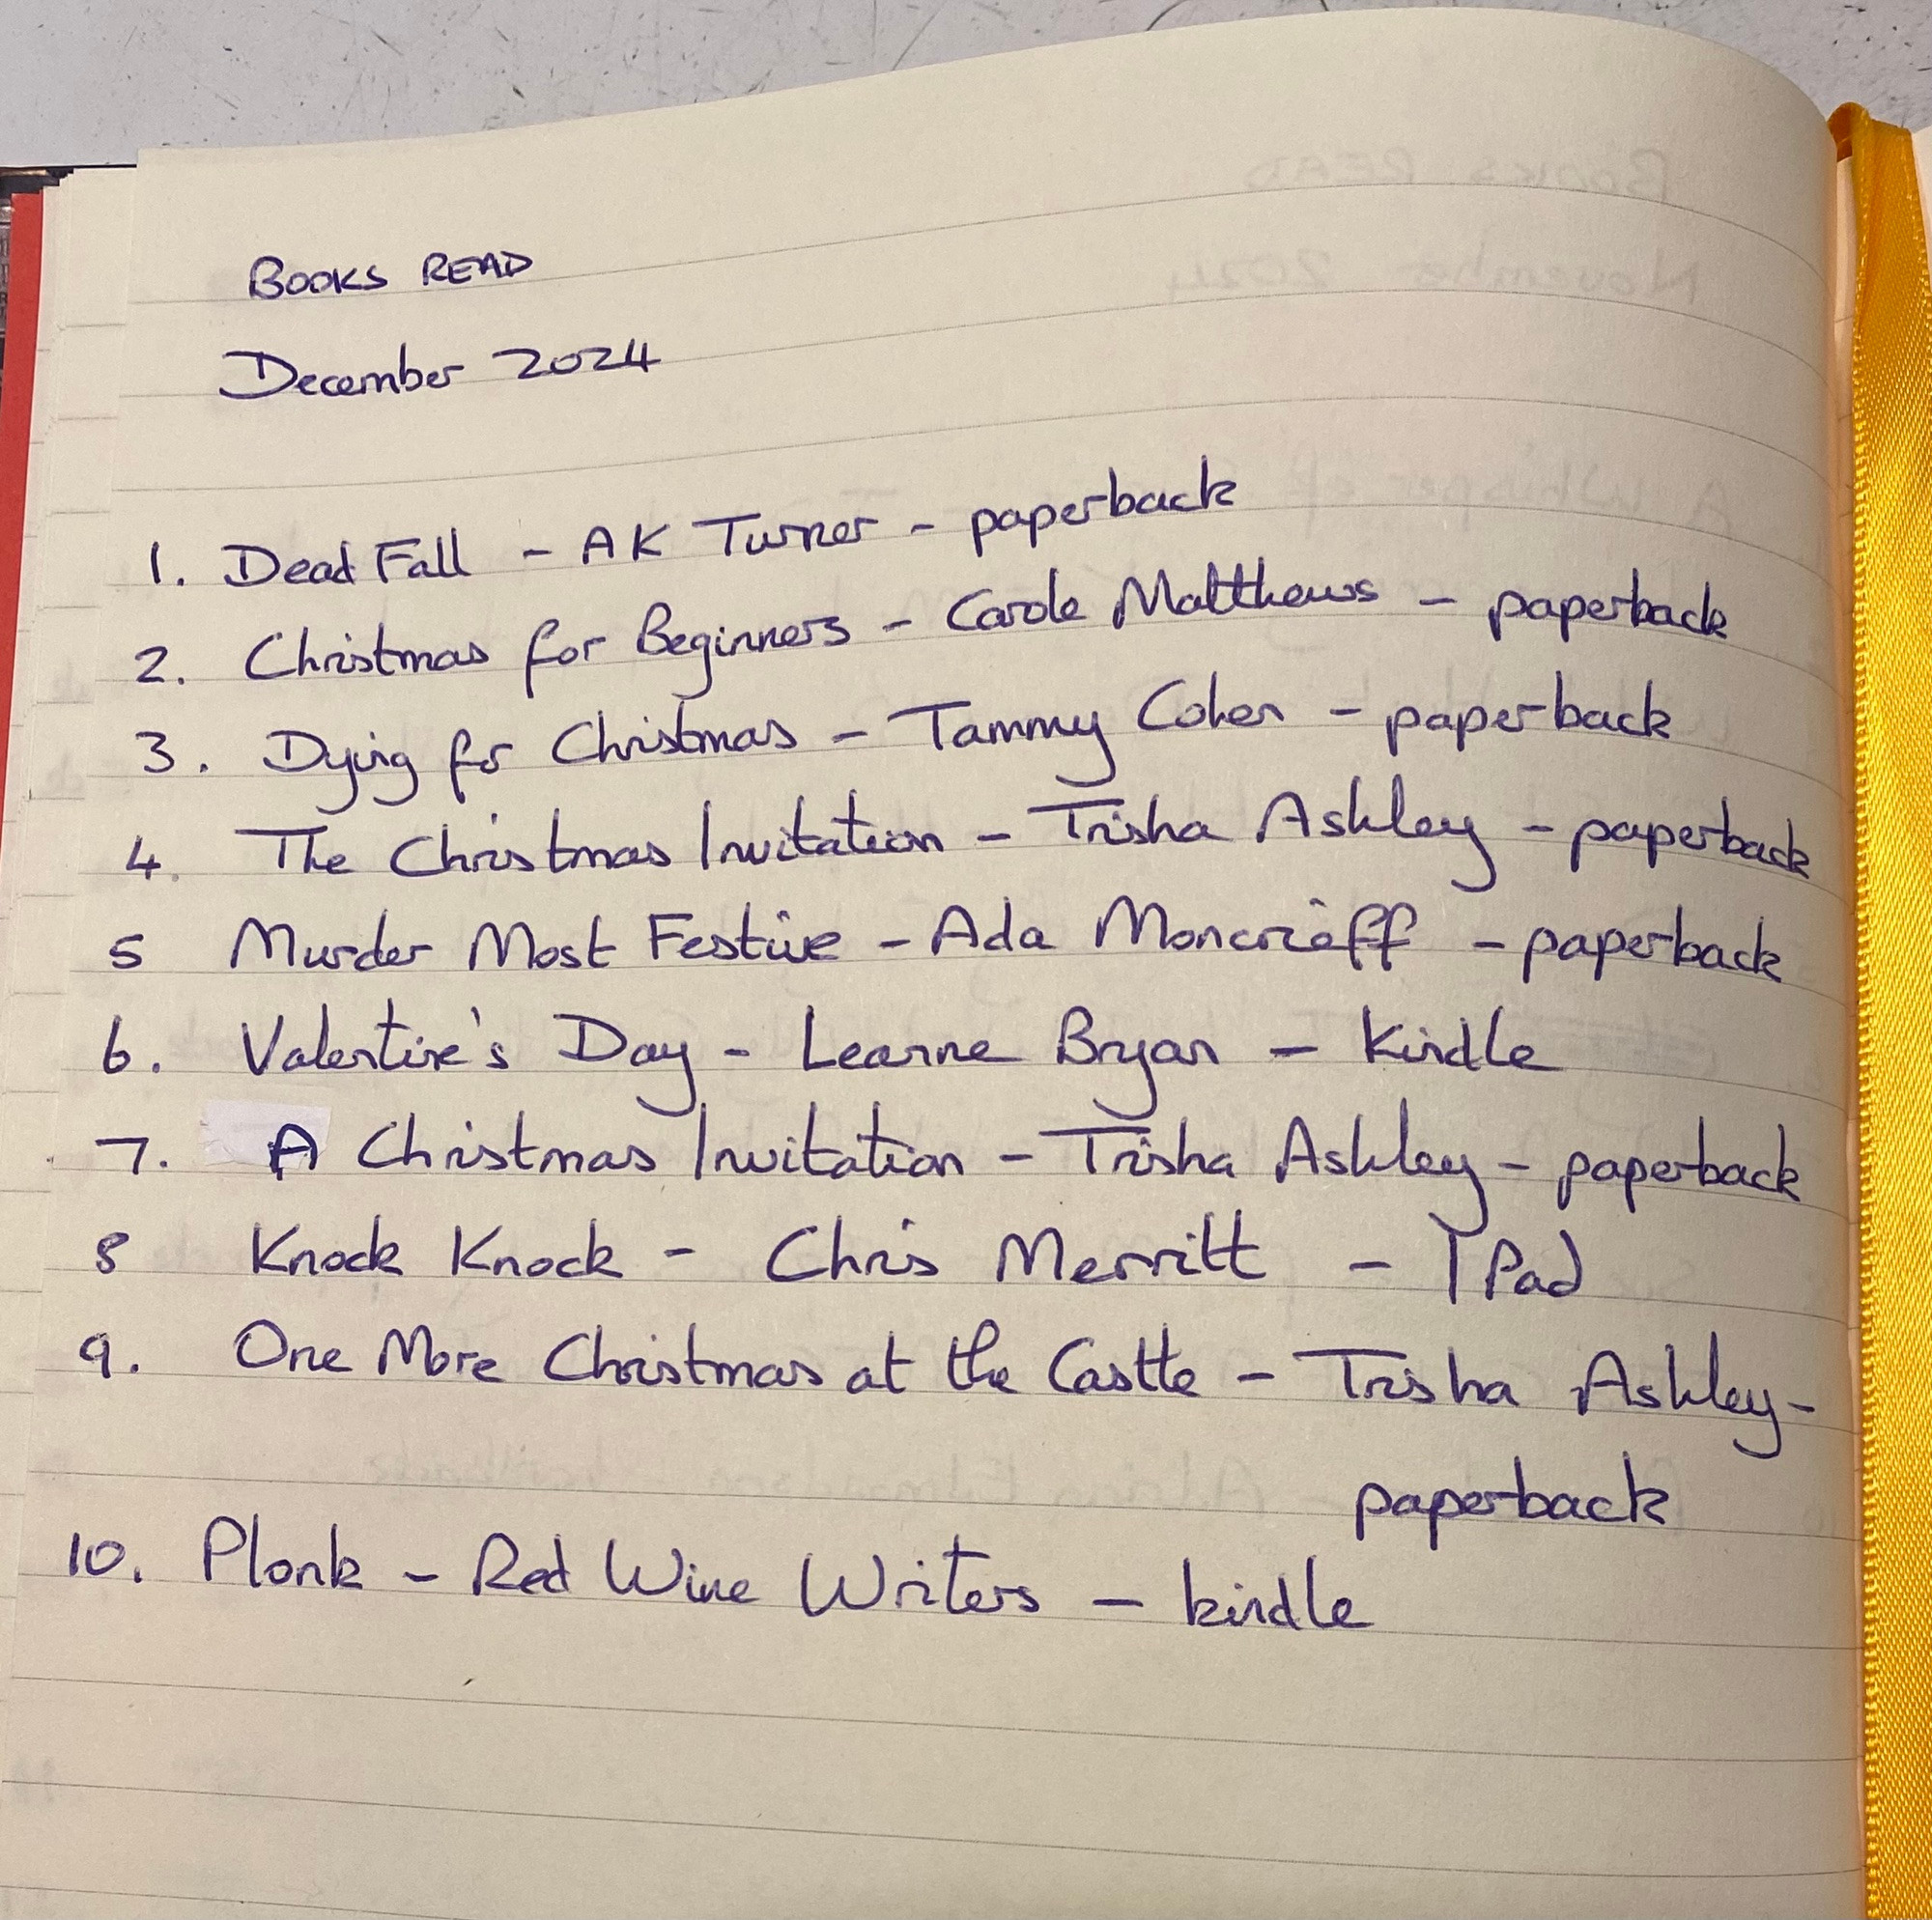 BOOKS READ
December 2024
1. Dead Fall - AK Turner - paperback
2. Christmas for Beginners - Carole Matthews - paperback
3. Dying for Christmas - Tammy Cohen - paperback
4. The Christmas Invitation - Trisha Ashley - paperback
5 Murder Most Festive - Ada Moncrieff - paperback
6. Valentine's Day - Leanne Bryan - Kindle
7. A Christmas Invitation - Trisha Ashley - paperback
8 Knock Knock - Chris Merritt - IPad
9. One More Christmas at the Castle - Trisha Ashley -
paperback
10. Plonk - Red Wine Writers - kindle